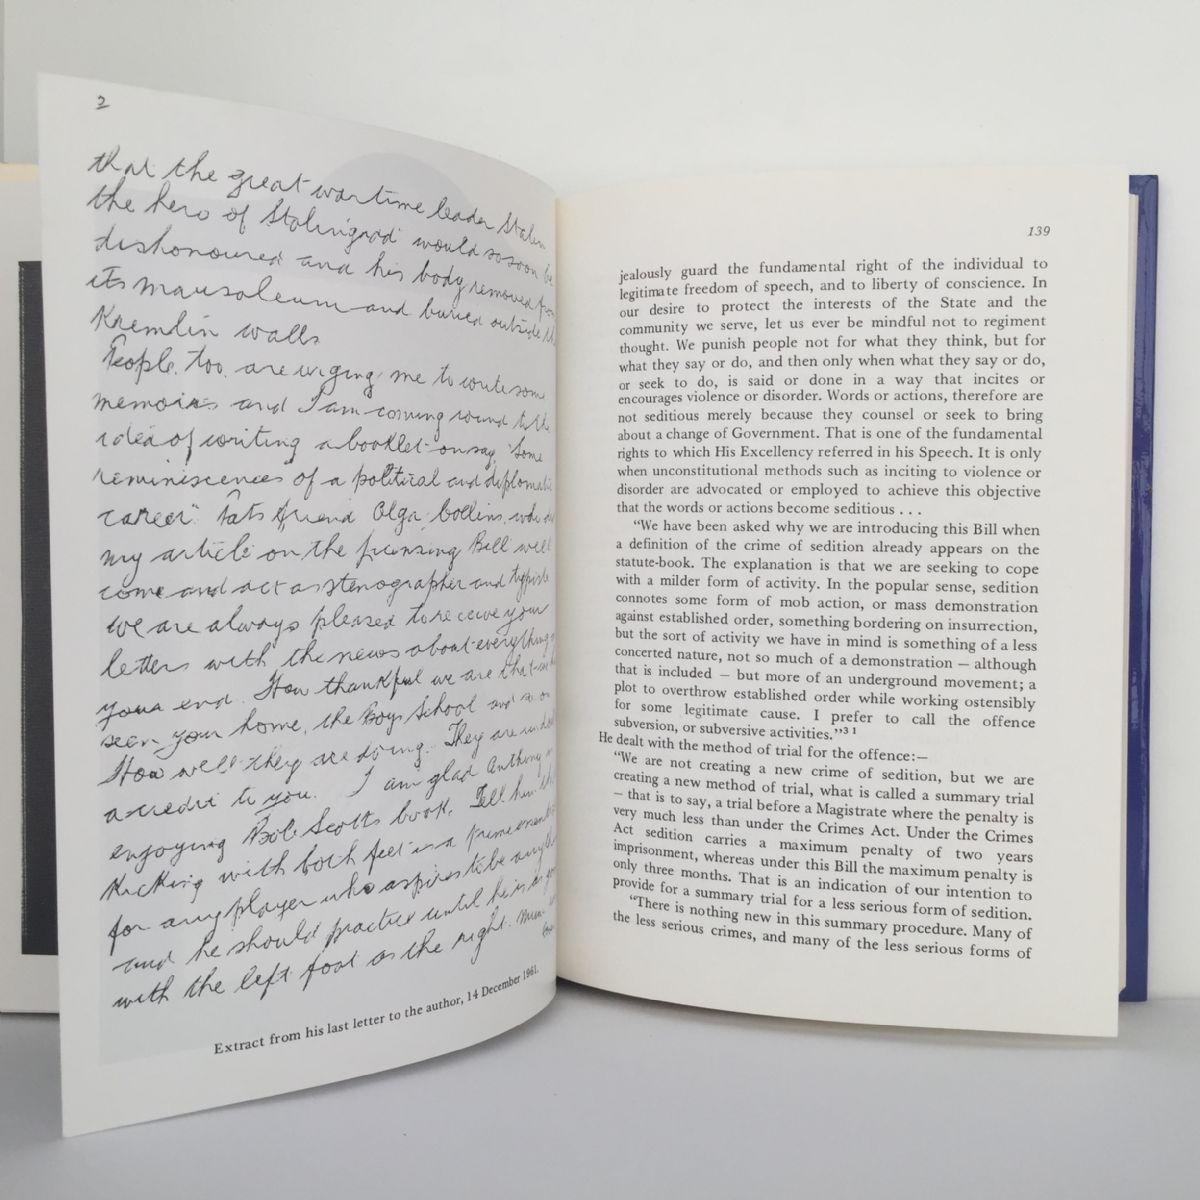 2
that the great wartime leader Stalin
the hero of Stalingrad would so soon be
dishonoured and his body removed from
its mausoleum and buried outside the
Kremlin walls
People, too, are urging me to write some
memoirs and I am coming round to the
idea of writing a booklet on say, "Some
reminiscences of a political and diplomatic
career". Pat's friend Olga, who
my article on the Bill will
come and act as stenographer and typiste
We are always pleased to receive your
letters with the news about everything
your end. How thankful we are that
seen your home, the Boys School and so on
How well they are doing. They are
a credit to you. I am glad Anthony is
enjoying Bob Scott's book. Tell him that
Kicking with both feet is a
for any player who aspires to be any
and he should practice until he is as good
with the left foot as the right.
Extract from his last letter to the author, 14 December 1961.
139
jealously guard the fundamental right of the individual to
legitimate freedom of speech, and to liberty of conscience. In
our desire to protect the interests of the State and the
community we serve, let us ever be mindful not to regiment
thought. We punish people not for what they think, but for
what they say or do, and then only when what they say or do,
or seek to do, is said or done in a way that incites or
encourages violence or disorder. Words or actions, therefore are
not seditious merely because they counsel or seek to bring
about a change of Government. That is one of the fundamental
rights to which His Excellency referred in his Speech. It is only
when unconstitutional methods such as inciting to violence or
disorder are advocated or employed to achieve this objective
that the words or actions become seditious . . .
"We have been asked why we are introducing this Bill when
a definition of the crime of sedition already appears on the
statute-book. The explanation is that we are seeking to cope
with a milder form of activity. In the popular sense, sedition
connotes some form of mob action, or mass demonstration
against established order, something bordering on insurrection,
but the sort of activity we have in mind is something of a less
concerted nature, not so much of a demonstration — although
that is included — but more of an underground movement; a
plot to overthrow established order while working ostensibly
for some legitimate cause. I prefer to call the offence
subversion, or subversive activities."31
He dealt with the method of trial for the offence:—
"We are not creating a new crime of sedition, but we are
creating a new method of trial, what is called a summary trial
— that is to say, a trial before a Magistrate where the penalty is
very much less than under the Crimes Act. Under the Crimes
Act sedition carries a maximum penalty of two years
imprisonment, whereas under this Bill the maximum penalty is
only three months. That is an indication of our intention to
provide for a summary trial for a less serious form of sedition.
"There is nothing new in this summary procedure. Many of
the less serious crimes, and many of the less serious forms of